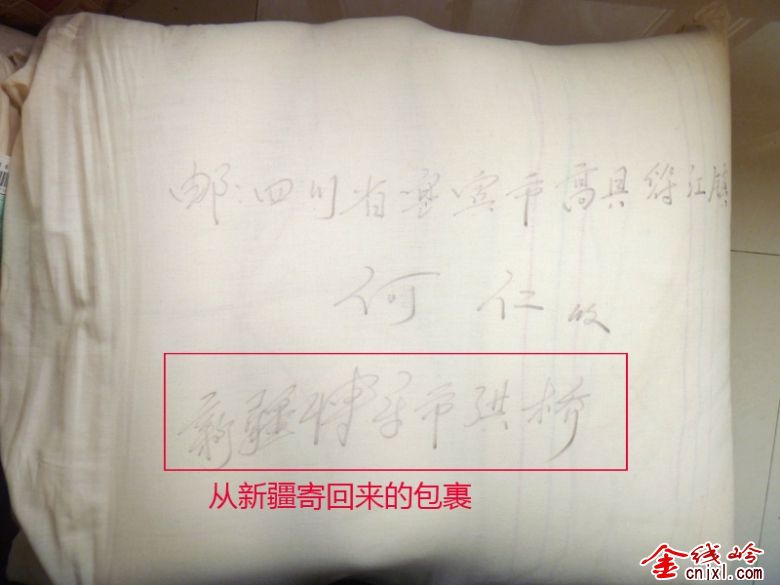 邮:四川省宜宾市高县符江镇
何仁收
新疆博乐市桥
从新疆寄回来的包裹
金线岭
cnixl.com